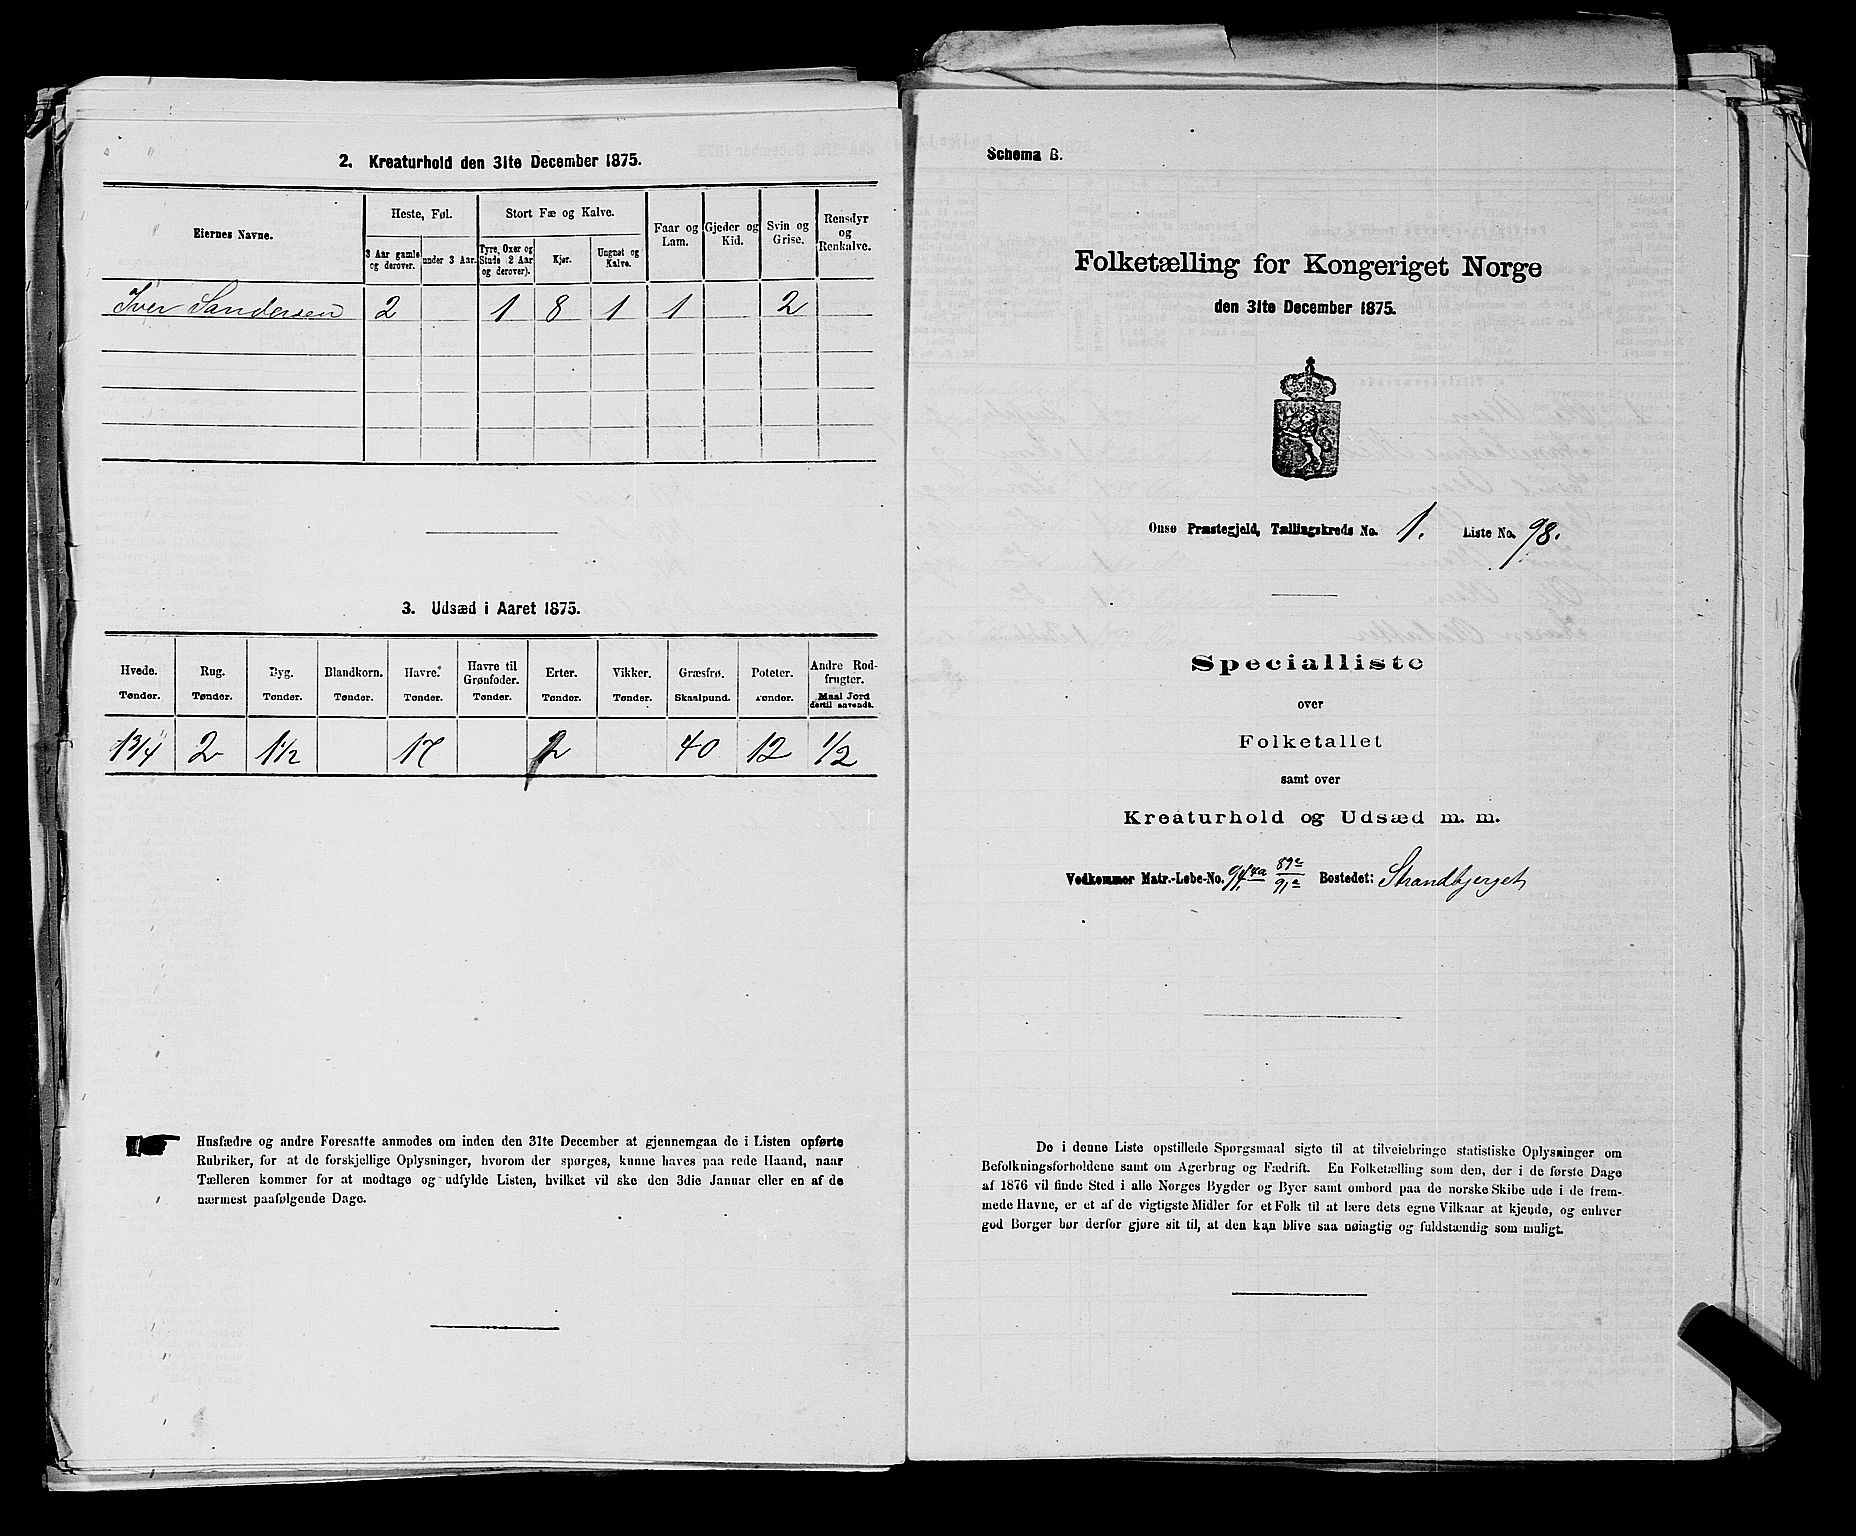 2. Kreaturhold den 31te December 1875.
Eiernes Navne.
Heste, Føl.
Stort Fæ og Kalve.
Faar og Lam.
Gjeder og Kid.
Svin og Grise.
Rensdyr og Renkalve.
3 Aar gamle og derover.
under 3 Aar.
Tyre, Oxer og Stude 2 Aar og derover).
Kjør.
Ungnøt og Kalve.
Iver Sandersen 2 1 8 1 1 2
3. Udsæd i Aaret 1875.
Hvede. Rug. Byg. Blandkorn. Havre. Havre til Grønfoder. Erter. Vikker. Græsfrø. Poteter. Andre Rodfrugter.
Tønder. Tønder. Tønder. Tønder. Tønder. Tønder. Tønder. Tønder. Skaalpund. Tønder. Maal Jord dertil anvendt.
1 3/4 2 1 1/2 17 2 40 12 1/2
Husfædre og andre Foresatte anmodes om inden den 31te December at gjennemgaa de i Listen opførte
Rubriker, for at de forskjellige Oplysninger, hvorom der spørges, kunne haves paa rede Haand, naar
Tælleren kommer for at modtage og udfylde Listen, hvilket vil ske den 3die Januar eller en af de
nærmest paafølgende Dage.
Schema B.
Folketælling for Kongeriget Norge
den 31te December 1875.
Onsø Præstegjeld, Tællingskreds No. 1. Liste No. 98.
Specialliste
over
Folketallet
samt over
Kreaturhold og Udsæd m. m.
Vedkommer Matr.-Løbe-No. 94 4a 89c/91a Bostedet: Strandbjerget
De i denne Liste opstillede Spørgsmaal sigte til at tilveiebringe statistiske Oplysninger om
Befolkningsforholdene samt om Agerbrug og Fædrift. En Folketælling som den, der i de første Dage
af 1876 vil finde Sted i alle Norges Bygder og Byer samt ombord paa de norske Skibe ude i de frem-
mede Havne, er et af de vigtigste Midler for et Folk til at lære dets egne Vilkaar at kjende, og enhver
god Borger bør derfor gjøre sit til, at den kan blive saa nøiagtig og fuldstændig som muligt.